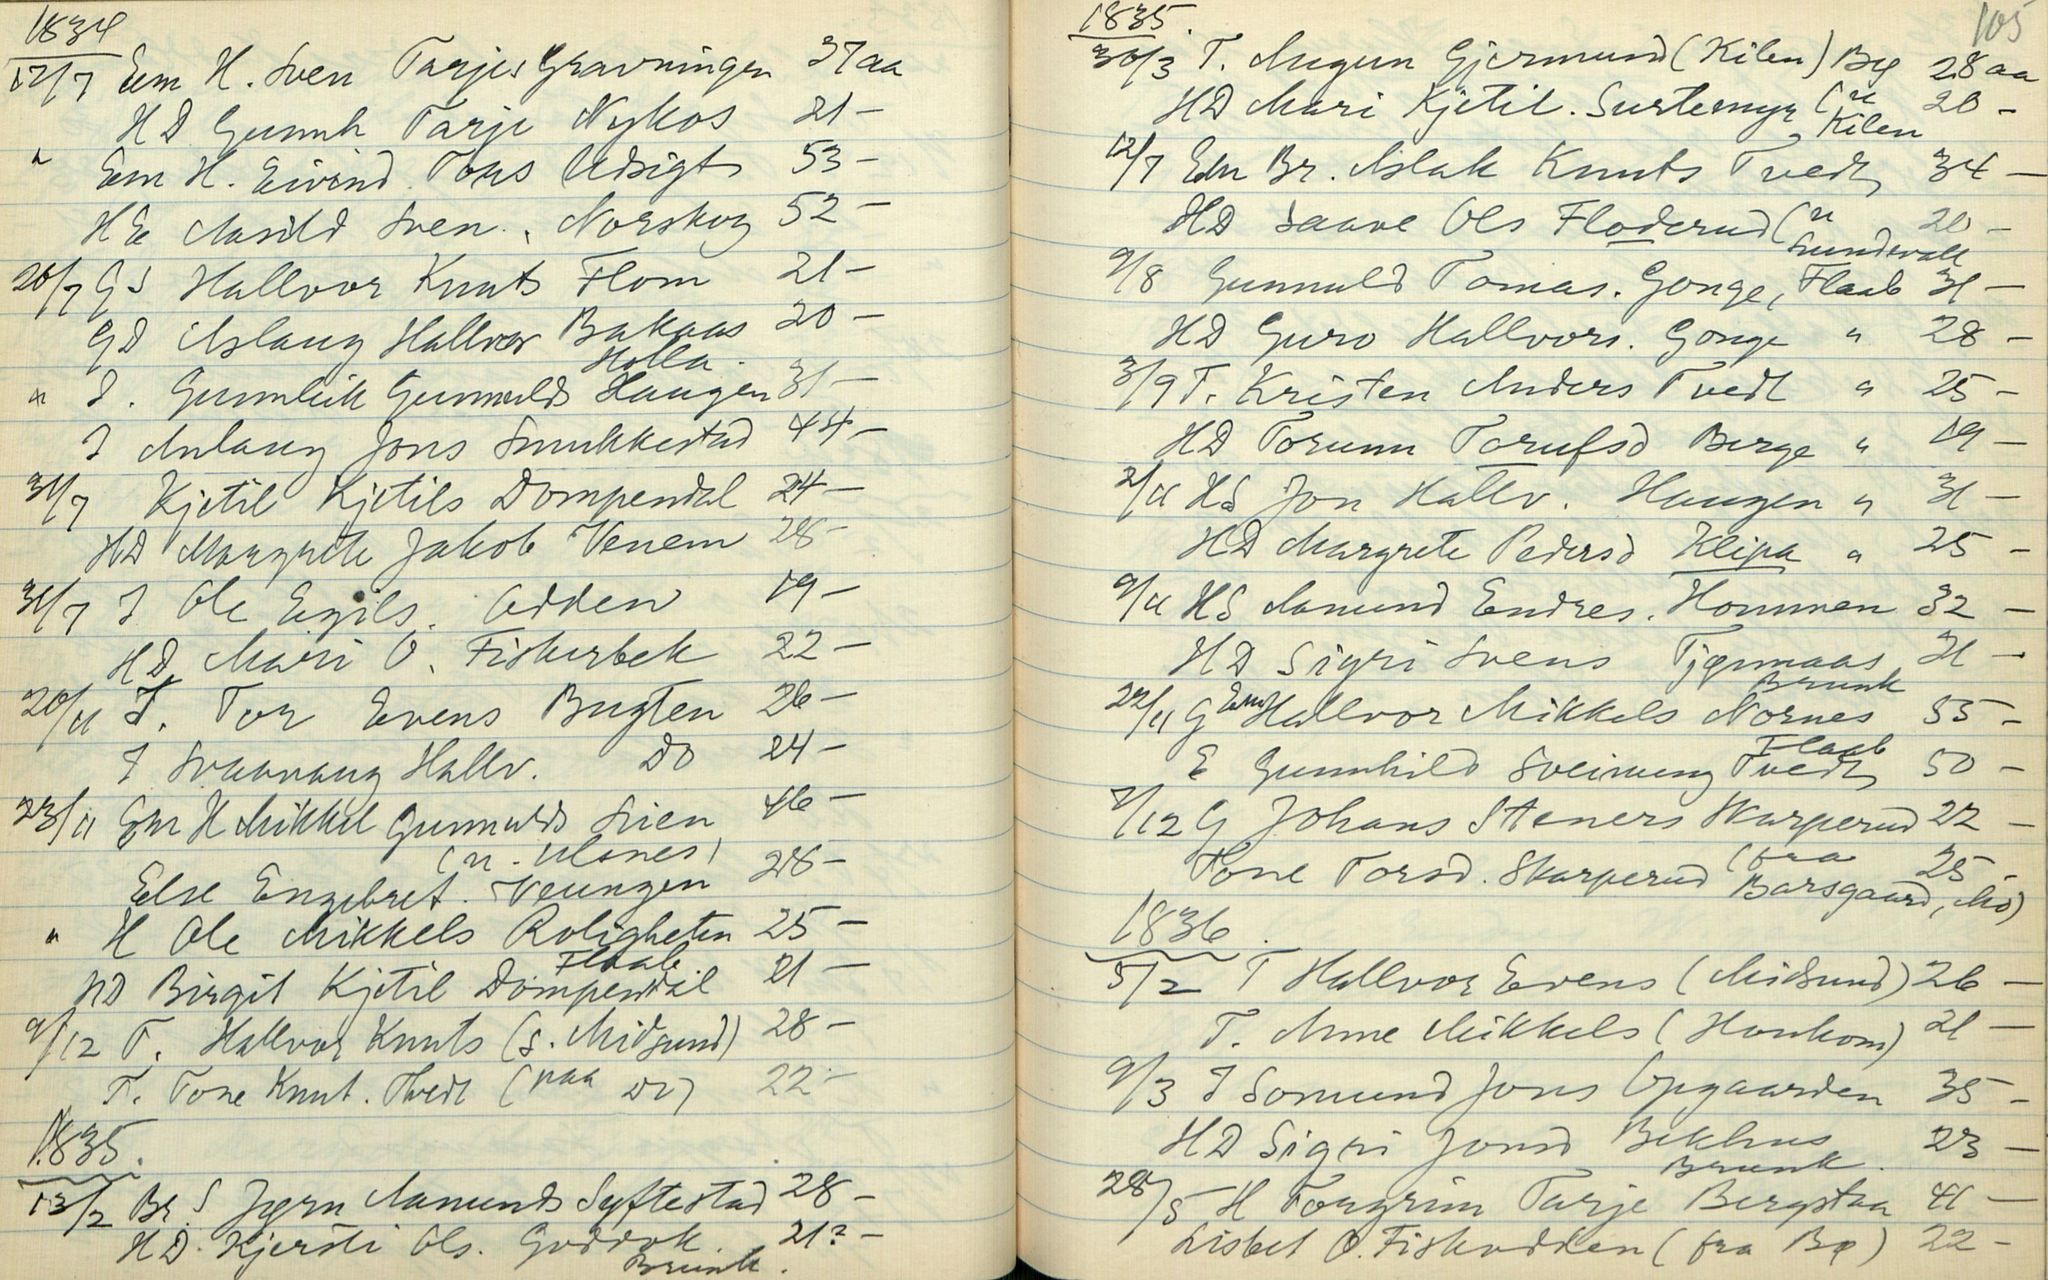 1834
12/7 Em H. Sven Tarjes Gravningen 37 aa
HD Gunnh Tarje Nykos 21 —
" Em H. Eivind Tons Udsigt 53 —
HE Aasild Sven. Norskog 52 —
20/7 GS Hallvor Knuts Flom 21 —
GD Aslaug Hallvor Bakaas 20 —
Holla.
" I. Gunnleik Gunnulds Haugen 31 —
I Anlaug Jons Smukkestad 44 —
31/7 Kjetil Kjetils Dompendal 24 —
HD Margrete Jakob Venem 28 —
31/7 I Ole Egils. Odden 19 —
HD Mari O. Fiskerbek 22 —
20/11 I. Tor Evens Bugten 26 —
I Svanaug Hallv. Do 24 —
23/11 Em H Mikkel Gunnulds Lien 46 —
(n. Ulsnes)
Else Engebret. Veungen 28 —
" H Ole Mikkels Roligheten 25 —
Flaab
HD Birgit Kjetil Dompendal 21 —
9/12 T. Hallvor Knuts (s. Midsund) 28 —
T. Tone Knut. Tvedt (paa Do) 22 —
1835.
13/2 Br. S Jørn Aamunds Syftestad 28 —
HD. Kjersti Ols. Goddok. 21? —
Brunk.
105
1835.
30/3 T. Augun Gjermund (Kilen) Bø 28 aa
HD Mari Kjetil. Surtemyr (n 20 —
Kilen
12/7 Em Br. Aslak Knuts Tvedt 34 —
HD Saave Ols Floderud (n 20 —
Sundvall
9/8 Gunnuld Tomas. Gonge, Flaab 31 —
HD Guro Hallvors. Gonge " 28 —
3/9 T. Kristen Anders Tvedt " 25 —
HD Torunn Torufsd Berge " 19 —
2/11 HS Jon Hallv. Haugen " 31 —
HD Margrete Pedersd Klipa " 25 —
9/11 HS Aamund Endres. Hommen 32 —
HD Sigri Svens Tjønmaas 31 —
Brunk
22/11 G Em Hallvor Mikkels Nornes 55 —
Flaab
E Gunnhild Sveinung Tvedt 50 —
7/12 G Johans Steners Skarperud 22 —
Tone Torsd. Skarperud (fra 25 —
Borsgaard, Mo)
1836.
5/2 T Hallvor Evens (Midsund) 26 —
T. Anne Mikkels (Honkom) 21 —
9/3 I Somund Jons Opgaarden 35 —
HD Sigri Jonsd Bekhus 23 —
Brunk.
28/5 H Torgrim Tarje Bergstaa 41 —
Lisbet O. Fiskodden (fra Bø) 22 —